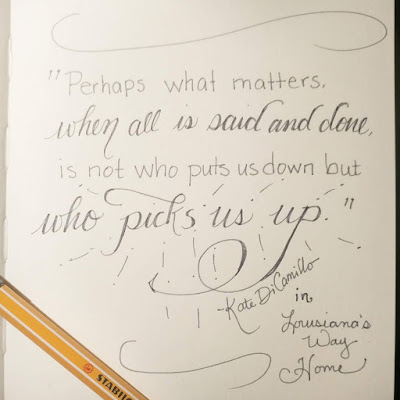 "Perhaps what matters,
when all is said and done,
is not who puts us down but
who picks us up."
-Kate DiCamillo
in
Lousiana's
Way
Home
STABILO